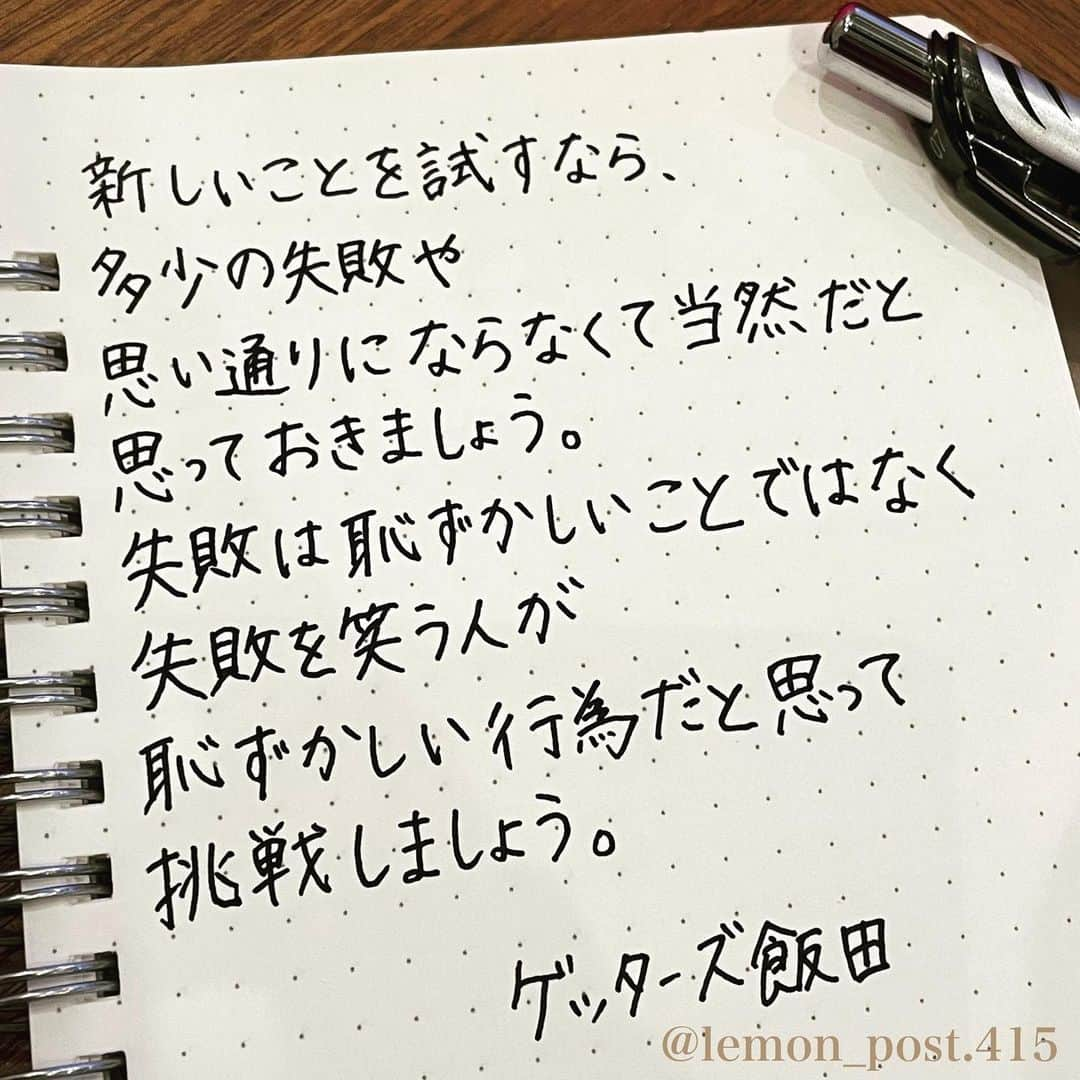 新しいことを試すなら、
多少の失敗や
思い通りにならなくて当然だと
思っておきましょう。
失敗は恥ずかしいことではなく
失敗を笑う人が
恥ずかしい行為だと思って
挑戦しましょう。
ゲッターズ飯田
@lemon_post.415